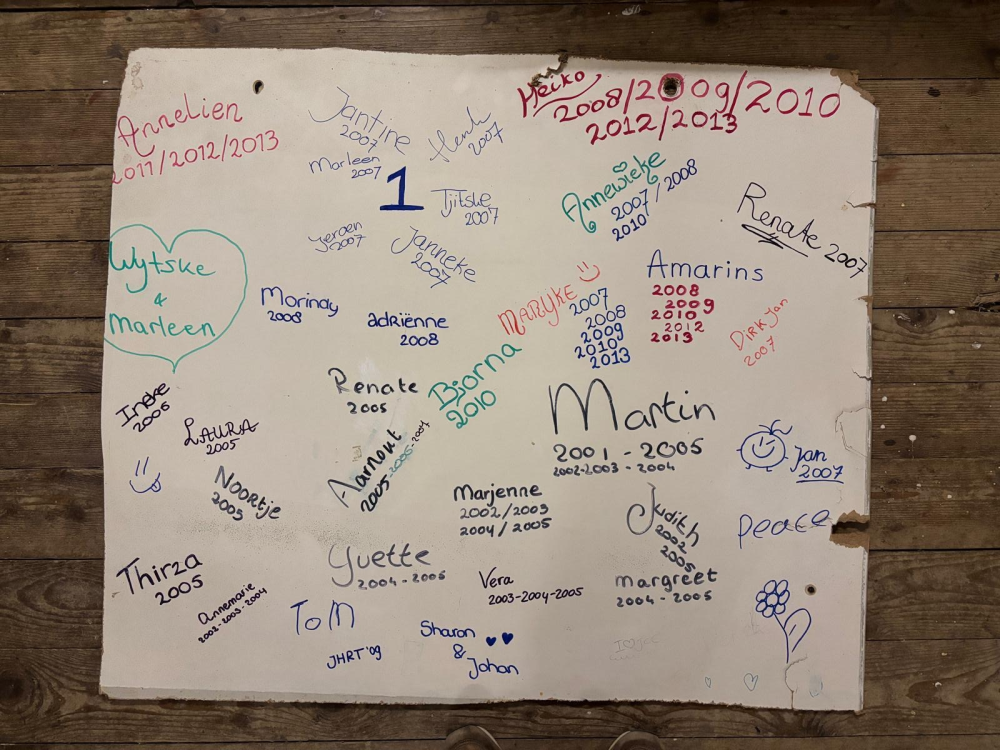 Annelien
2011/2012/2013
Jantine
2007
Marleen
2007
Henk
2007
1
Tjitske
2007
Jeroen
2007
Janneke
2007
Heiko
2008/2009/2010
2012/2013
Annewieke
2007/2008
2010
Renate 2007
Wytske
&
Marleen
Morindy
2008
adriënne
2008
MARIJKE
2007
2008
2009
2010
2013
Amarins
2008
2009
2010
2012
2013
Dirk Jan
2007
Ineke
2005
LAURA
2005
Noortje
2005
Renate
2005
Bjorna
2010
Aarnout
2005-2006-2004
Martin
2001 - 2005
2002-2003 - 2004
Jan
2007
Marjenne
2002/2003
2004/2005
Judith
2002
2005
peace
Thirza
2005
Annemarie
2002-2003-2004
Yvette
2004-2005
Vera
2003-2004-2005
margreet
2004 - 2005
ToM
JHRT '09
Sharon
&
Johan